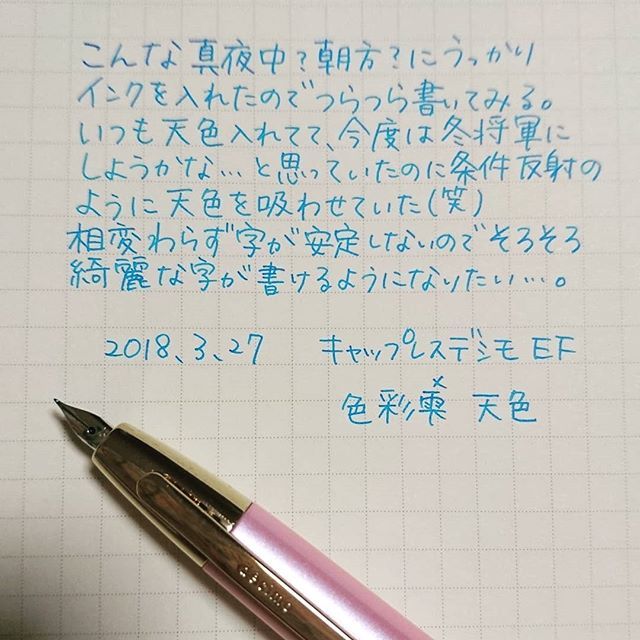 こんな真夜中?朝方?にうっかり
インクを入れたのでつらつら書いてみる。
いつも天色入れてて、今度は冬将軍に
しようかな…と思っていたのに条件反射の
ように天色を吸わせていた(笑)
相変わらず字が安定しないのでそろそろ
綺麗な字が書けるようになりたい…。
2018.3.27 キャップレスデシモ EF
色彩雫 天色
decimo